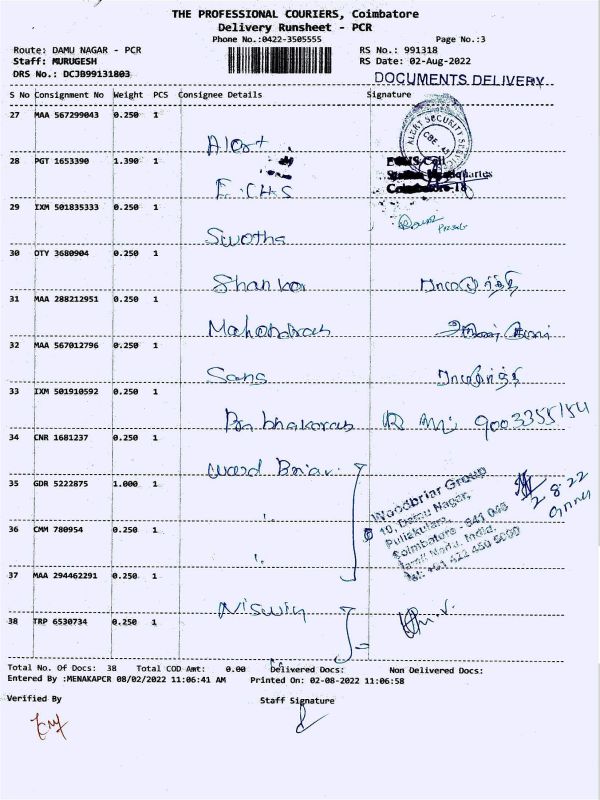 THE PROFESSIONAL COURIERS, Coimbatore
Delivery Runsheet - PCR
Phone No.:0422-3505555
Page No.:3
Route: DAMU NAGAR - PCR
RS No.: 991318
Staff: MURUGESH
RS Date: 02-Aug-2022
DRS No.: DCJB99131803
DOCUMENTS DELIVERY
S No Consignment No Weight PCS Consignee Details Signature
27 MAA 567299043 0.250 1
Alert
ALERT SECURITY
CBE-45
28 PGT 1653390 1.390 1
E.CHS
ECHS Cell
Station Headquarters
Coimbatore-18
29 IXM 501835333 0.250 1
Swotha
30 OTY 3680904 0.250 1
Shankar
31 MAA 288212951 0.250 1
Mahendran
32 MAA 567012796 0.250 1
Sans
33 IXM 501910592 0.250 1
Prabhakaran 9003355154
34 CNR 1681237 0.250 1
Wood Briar
35 GDR 5222875 1.000 1
"
Woodbriar Group
10, Damu Nagar,
Puliakulam,
Coimbatore - 641 045
Tamil Nadu, India.
Tel: +91 422 450 5000
2.8.22
36 CMM 780954 0.250 1
"
37 MAA 294462291 0.250 1
Niswin
38 TRP 6530734 0.250 1
Total No. Of Docs: 38 Total COD Amt: 0.00 Delivered Docs: Non Delivered Docs:
Entered By :MENAKAPCR 08/02/2022 11:06:41 AM Printed On: 02-08-2022 11:06:58
Verified By Staff Signature